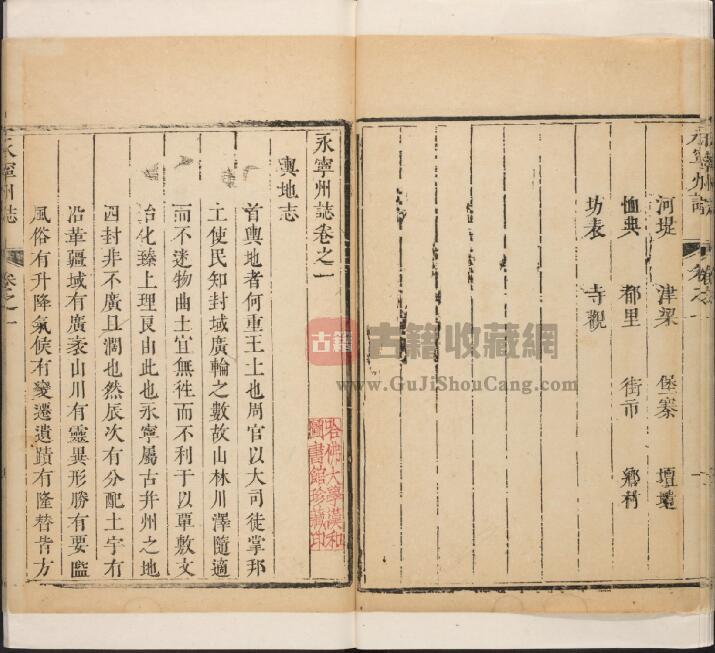 永寧州誌
河堤 津梁 堡寨 壇壝
恤典 都里 街市 鄉村
坊表 寺觀
永寧州誌卷之一
輿地志
首輿地者何重王土也周官以大司徒掌邦
土使民知封域廣輪之數故山林川澤隨適
而不迷物曲土宜無徃而不利于以覃敷文
治化臻上理艮由此也永寧屬古幷州之地
四封非不廣且濶也然辰次有分配土宇有
沿革疆域有廣袤山川有靈異形勝有要隘
風俗有升降氣候有變遷遺蹟有隆替昔方
永寧州誌 卷之一
哈佛大學漢和
圖書館珍藏印
古籍
古籍收藏網
www.GuJiShouCang.com